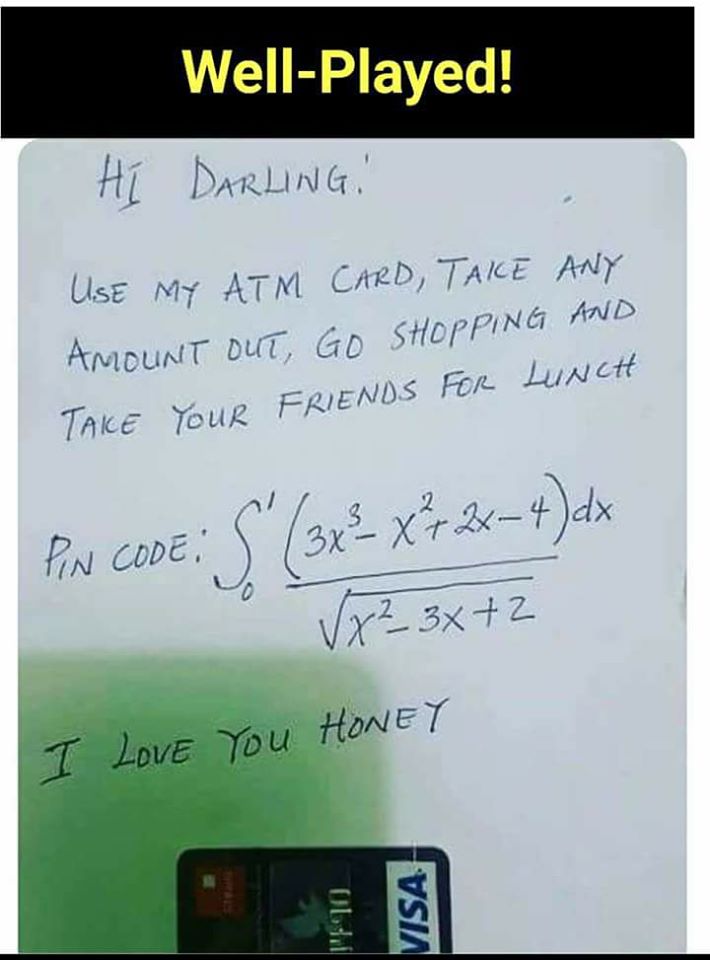 Well-Played!
HI DARLING!
USE MY ATM CARD, TAKE ANY
AMOUNT OUT, GO SHOPPING AND
TAKE YOUR FRIENDS FOR LUNCH
PIN CODE: ∫₀¹ (3x³ - x² + 2x - 4)dx / √(x² - 3x + 2)
I LOVE YOU HONEY
VISA